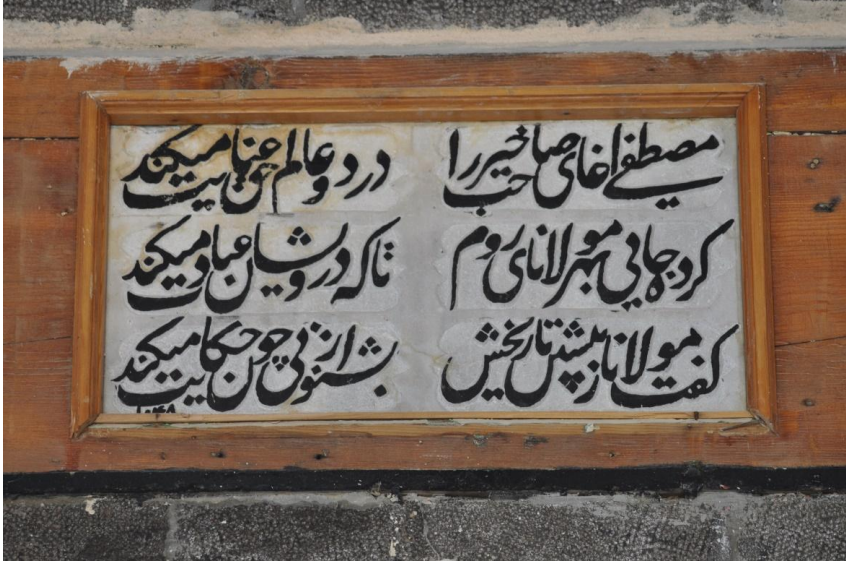 مصطفی اغای صاحب خیر را در دو عالم حق عنایت میکند
کرده جایی بهر مولانای روم تا که درویشان عبادت میکند
کفت مولانا ز پیش تاریخش بشنو از نی چون حکایت میکند
۱۰۴۸